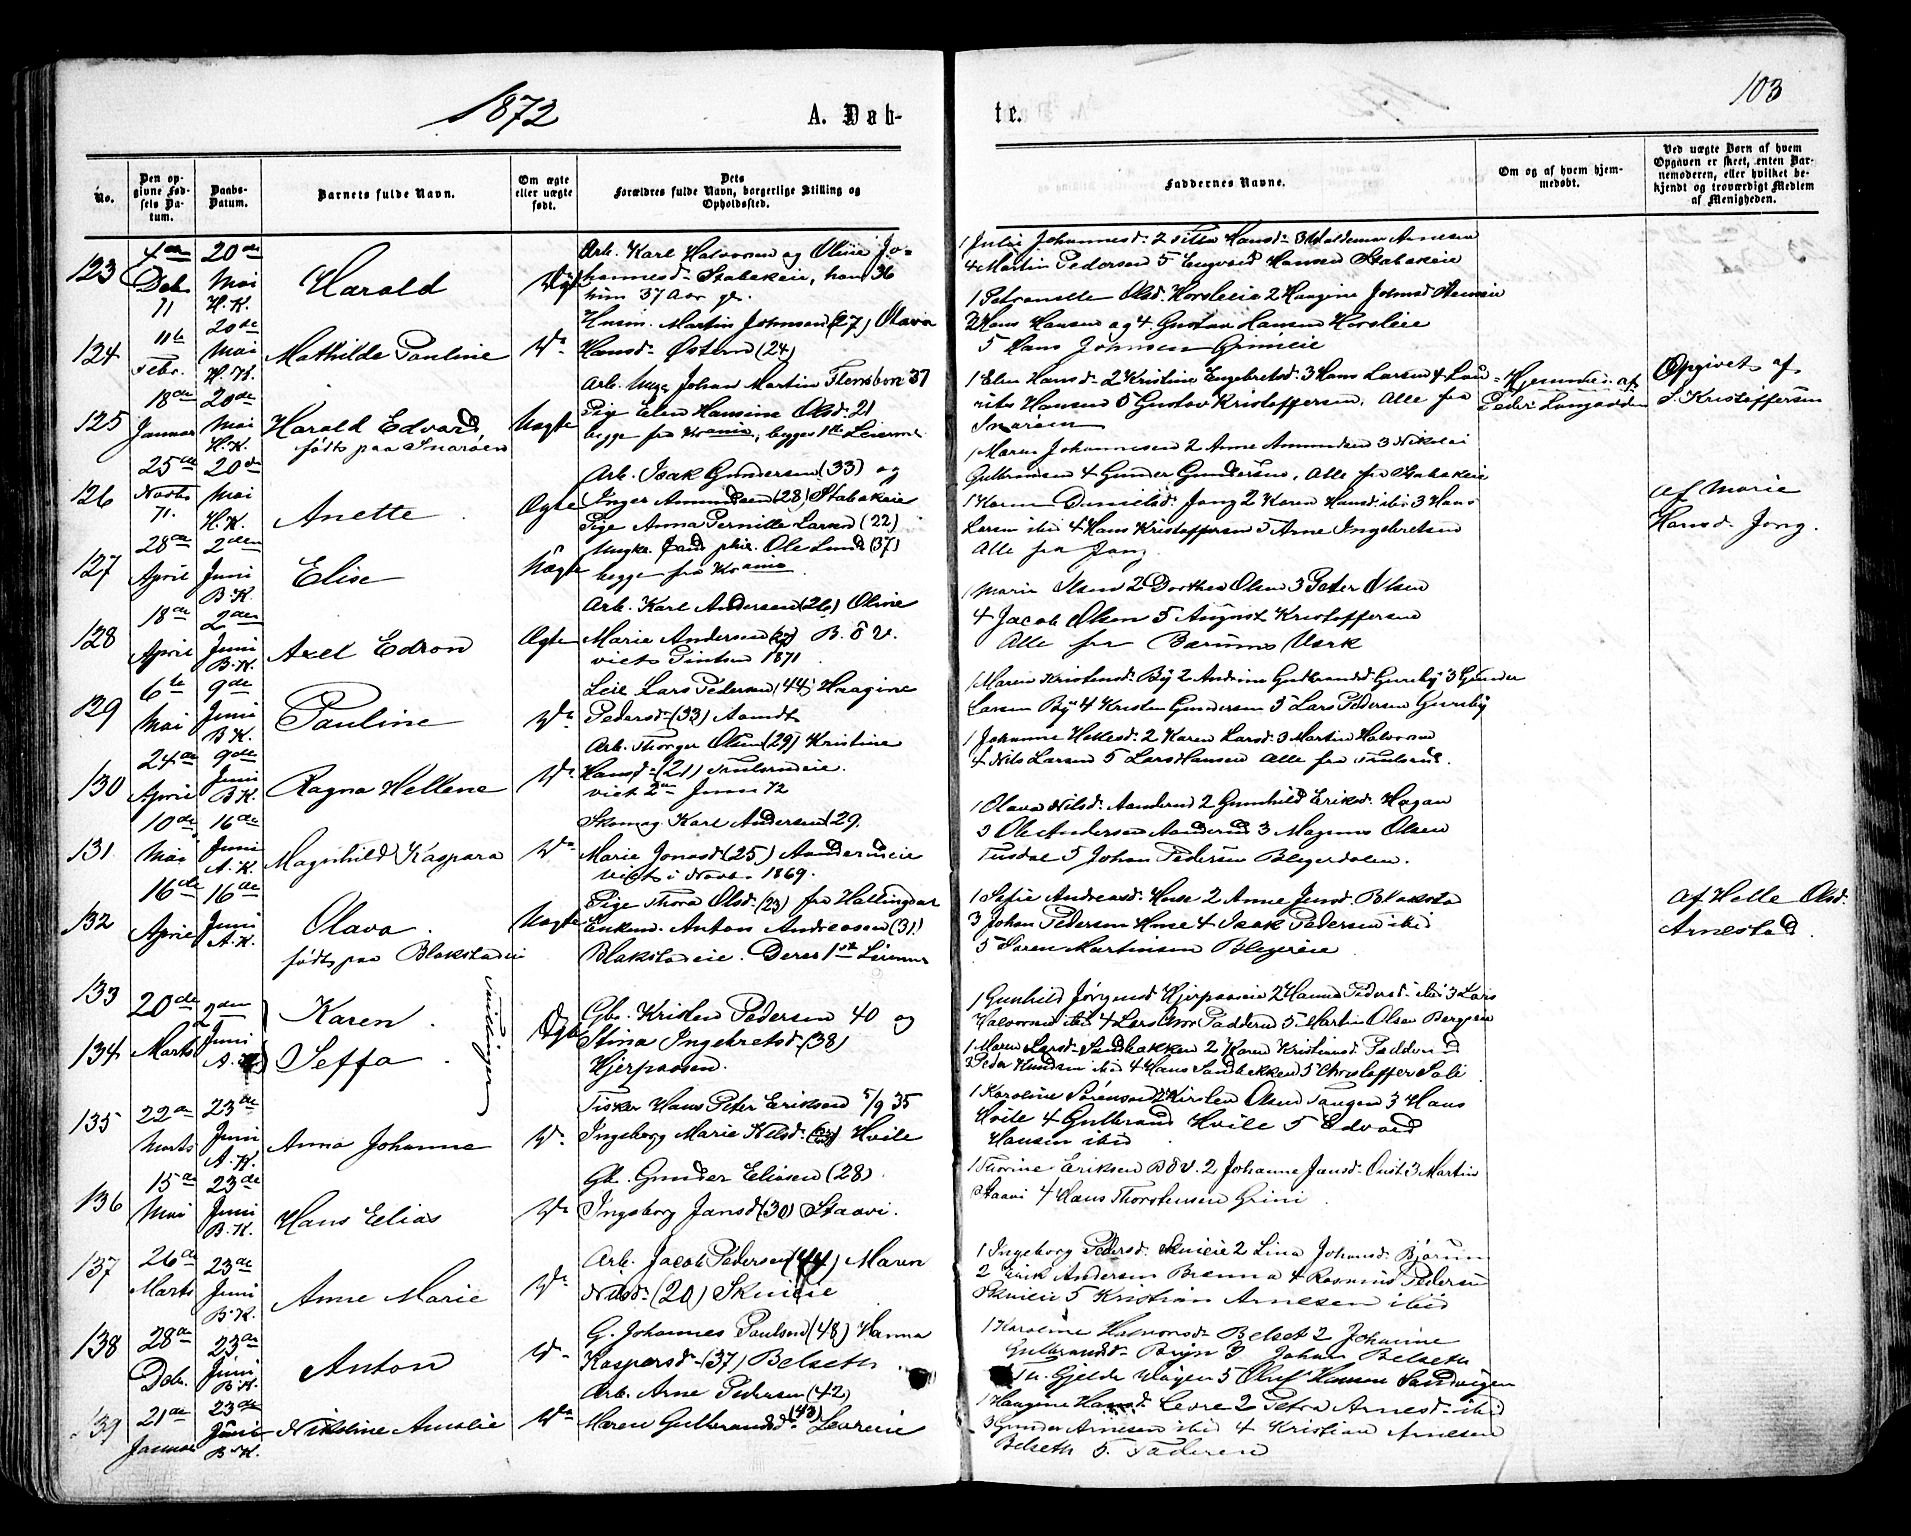 1872
A. Døb-
te.
103
No.
Den op-
givne Fød-
sels Da-
tum.
Daabs-
Datum.
Barnets fulde Navn.
Om ægte
eller uægte
født.
Dets
Forældres fulde Navn, borgerlige Stilling og
Opholdssted.
Faddernes Navne.
Om og af hvem hjem-
medøbt.
Ved uægte Børn af hvem
Opgaven er skeet, enten Bar-
nemoderen, eller hvilket be-
kjendt og troværdigt Medlem
af Menigheden.
123
4de
Deb
71
20de
Mai
H.K.
Harald
Arb. Karl Halvorsen og Oline Jo-
hannesd. Stabekeie, han 36
hun 37 Aar gl.
1 Julie Johannesd. 2 Hansd. 3 Waldemar Arnesen
4 Martin Pedersen 5 Engvard Hansen Stabekeie
124
11te
Febr.
20de
Mai
H.K.
Mathilde Pauline
Do
Husm. Martin Johnsen (27) Olava
Hansd. Østern (24)
1 Petronelle Olsd. Horsleeie 2 Haagine Johnsd
3 Hans Hansen og 4. Gustav Hansen Horsleie
5 Hans Johnsen Grinieie
125
18de
Januar
20de
Mai
H.K.
Harald Edvard
født paa Snarøen
Uægte
Arb. Ungk. Johan Martin 37
Pige Elen Hansine Olsd. 21
begge fra Krania, begges 1ste Leierm.
1 Elen Hansd. 2 Kristine Engebretsd. 3 Hans Larsen 4 Lau-
rits Hansen 5 Gustav Kristoffersen. Alle fra
Snarøen
Hjemmedøbt af
Peder
Opgivet af
Kristoffersen
126
25de
Novbr
71.
20de
Mai
H.K.
Anette
Ægte
Arb. Isak Gundersen (33) og
Inger Amundsen (28) Stabekeie
1 Maren Johannesen 2 Anne Amundsen 3 Nikolai
Gulbransen 4 Gunder Gundersen. Alle fra Stabekeie
127
28de
April
2den
Juni
B.K.
Elise
Uægte
Pige Anna Pernille Larsen (22)
Ungkr. Cand phil. Ole Lund (37)
begge fra Krania.
1 Karen Danielsd. Jong 2 Karen Hansd. ibid 3 Hans
Larsen ibid 4 Hans Kristoffersen 5 Arne Ingebretsen
Alle fra Jong.
af Marie
Hansd. Jong.
128
18de
April
2den
Juni
B.K.
Axel Edron
Ægte
Arb. Karl Andersen (26) Oline
Marie Andersen B. & V.
viet Pintsen 1871.
Marie Olsen 2 Dorthea Olsen 3 Peter Olsen
4 Jacob Olsen 5 August Kristoffersen
Alle fra Bærums Værk
129
6te
Mai
9de
Juni
B.K.
Pauline
Do
Leie Lars Pedersen (44) Haagine
Pedersd. (33)
1 Maren Kristensd. By 2 Andrine Gulbrandsd. Gursby 3 Gunder
Larsen By 4 Kristen Gundersen 5 Lars Pedersen Gursby
130
24de
April
9de
Juni
B.K.
Ragna Hellene
Do
Arb. Thorger Olsen (29) Kristine
Hansd. (21)
viet 2den Juni 72
1 Johanne 2 Karen Larsd. 3 Martin Halvorsen
4 Nils Larsen 5 Lars Hansen Alle fra
131
10de
Mai
16de
Juni
A.K.
Magnhild Kaspara
Do
Skomag. Karl Andersen (29.
Marie Jonasd (25) Aanderudeie
viet i Novbr. 1869.
1 Olava Nilsd. Aanderud 2 Gunhild Eriksd. Hagan
3 Ole Andersen Aanderud 3 Magnus Olsen
Tusdal 5 Johan Pedersen Blegerdalen.
132
16de
April
16de
Juni
A.K.
Olava.
født paa Blakstadeie
Uægte
Pige Thora Olsd. (23) fra Hallingdal
Enkem. Anton Andreassen (31)
Blakstadeie. Deres 1ste Leierm.
1 Sofie Andreasd. 2 Anne Jensd. Blakstad
3 Johan Pedersen 4 Isak Pedersen ibid
5 Søren Martinsen Blegereie
af Helle Olsd.
Arnestad.
133
134
20de
Marts
2den
Juni
A.K.
Karen.
Seffa.
Tvillinger
Ægte
Gbr. Kristen Pedersen 40 og
Stina Ingebretsd. (38)
Hjerpaasen.
1 Gunhild Jørgensd Hjerpaaseie 2 Hanna Pedersd. ibid 3 Lars
Halvorsen ibid 4 Lars Padderud 5 Martin Olsen
1 Maren Larsd. Sandbakken 2 Karen Kristiansd. Padderud
3 Peder ibid 4 Hans Sandbakken 5 Christoffer
135
22de
Marts
23de
Juni
A.K.
Anna Johanne
Do
Tisker Hans Peter Eriksen 5/9 35
Ingeborg Marie Nilsd. Hvile
1 Karoline Sørensen 2 Kirsten Olsen Tangen 3 Hans
Hvile 4 Gulbrand Hvile 5 Edvard
Hansen ibid
136
15de
Mai
23de
Juni
B.K.
Hans Elias
Do
Gb. Gunder Eliasen (28)
Ingeborg Jansd. (30) Staavi.
1 Thorine Eriksen B & V. 2 Johanne Jansd. 3 Martin
Staavi 4 Hans Thorstensen Grini
137
26de
Marts
23de
Juni
B.K.
Anne Marie
Do
Arb. Jacob Pedersen (44) Maren
Nilsd. (20) Skuieie
1 Ingeborg Pedersd. Skuieie 2 Lina Johansd. Bjørum
2 Erik Andersen Brenna 4 Rasmus Pedersen
Skuieie 5 Kristian Arnesen ibid
138
28de
Deb.
23de
Juni
B.K.
Anton
Do
G. Johannes Paulsen (48) Hanna
Kaspersd. (37) Belseth.
1 Karoline Halvorsd. Belset 2 Johanne
Gulbrandsd. Bryn 3 Johan Belseth
Gjelder 5 Oluf Hansen Sandvigen
139
21de
Januar
23de
Juni
B.K.
Nikoline Amalie
Do
Arb. Arne Pedersen (42)
Maren Gulbrandsd. (43) Levreeie
1 Haagine Hansd. Levre 2 Petra Arnesd. ibid
3 Gunder Arnesen ibid 4 Kristian Arnesen
Belseth 5. Faderen